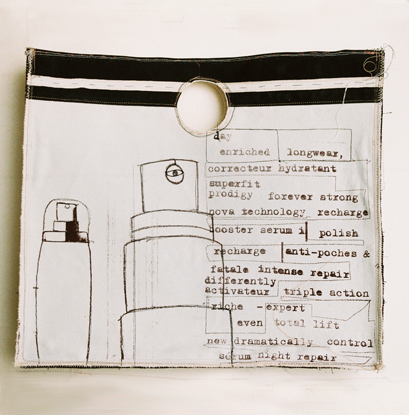 day
enriched longwear,
correcteur hydratant
superfit
prodigy forever strong
nova technology recharge
booster serum i polish
recharge anti-poches &
fatale intense repair
differently
activateur triple action
riche - expert
even total lift
new dramatically control
serum night repair